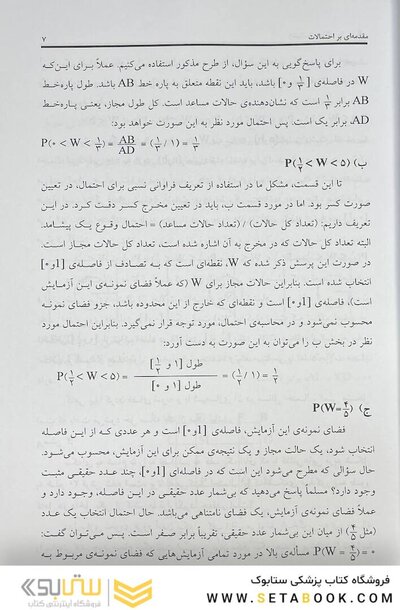 مقدمه‌ای بر احتمالات ۷
برای پاسخ‌گویی به این سؤال، از طرح مذکور استفاده می‌کنیم. عملاً برای این‌که
W در فاصله‌ی [۱/۲ و ۰] باشد، باید این نقطه متعلق به پاره خط AB باشد. طول پاره‌خط
AB برابر ۱/۲ است که نشان‌دهنده‌ی حالات مساعد است. کل طول مجاز، یعنی پاره‌خط
AD، برابر یک است. پس احتمال مورد نظر به این صورت خواهد بود:
P(۰ < W < ۱/۲) = AB/AD = (۱/۲ / ۱) = ۱/۲
ب) P(۱/۲ < W < ۵)
تا این قسمت، مشکل ما در استفاده از تعریف فراوانی نسبی برای احتمال، در تعیین
صورت کسر بود. اما در مورد قسمت ب، باید در تعیین مخرج کسر دقت کرد. در این
تعریف داریم: (تعداد کل حالات) / (تعداد حالات مساعد) = احتمال وقوع یک پیشامد.
البته تعداد کل حالات که در مخرج به آن اشاره شده است، تعداد کل حالات مجاز است.
در صورت این پرسش ذکر شده که W، نقطه‌ای است که به تصادف از فاصله‌ی [1و۰]
انتخاب شده است. بنابراین حالات مجاز برای W (که عملاً فضای نمونه‌ی این آزمایش
است)، فاصله‌ی [1و۰] است و نقطه‌ای که خارج از این محدوده باشد، جزو فضای نمونه
محسوب نمی‌شود و در محاسبه‌ی احتمال، مورد توجه قرار نمی‌گیرد. بنابراین احتمال مورد
نظر در بخش ب را می‌توان به این صورت به دست آورد:
P(۱/۲ < W < ۵) = طول [۱ و ۱/۲] / طول [۱ و ۰] = (۱/۲ / ۱) = ۱/۲
ج) P(W=۴/۵)
فضای نمونه‌ی این آزمایش، فاصله‌ی [1و۰] است و هر عددی که از این فاصله
انتخاب شود، یک حالت مجاز و یک نتیجه‌ی ممکن برای این آزمایش، محسوب می‌شود.
حال سؤالی که مطرح می‌شود این است که در فاصله‌ی [1و۰]، چند عدد حقیقی مثبت
وجود دارد؟ مسلماً پاسخ می‌دهید که بی‌شمار عدد حقیقی در این فاصله، وجود دارد و
عملاً فضای نمونه‌ی آزمایش، یک فضای نامتناهی می‌باشد. حال احتمال انتخاب یک عدد
(مثل ۴/۵) از میان این بی‌شمار عدد حقیقی، تقریباً برابر صفر است. پس می‌توان گفت:
P(W = ۴/۵) = ۰ مسأله‌ی بالا در مورد تمامی آزمایش‌هایی که فضای نمونه‌ی مربوط به
ستابوک
فروشگاه اینترنتی کتاب
فروشگاه کتاب پزشکی ستابوک
WWW.SETABOOK.COM